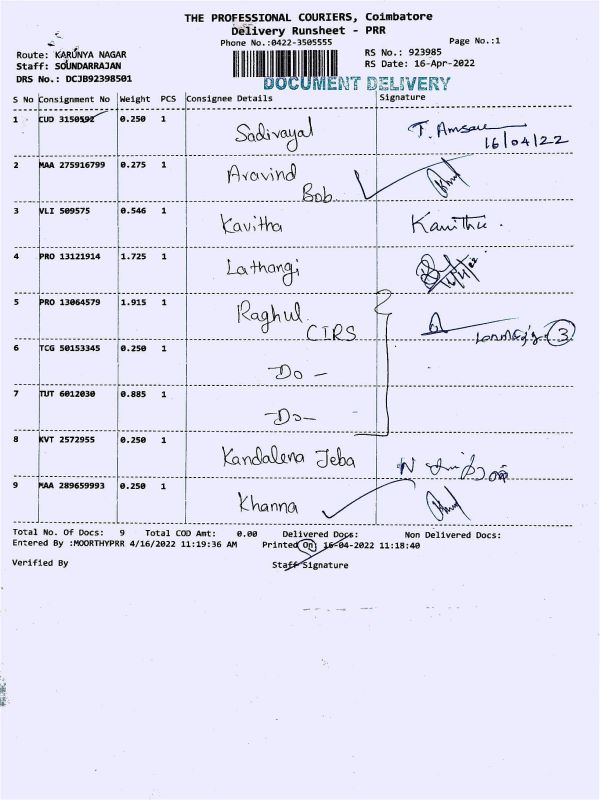 THE PROFESSIONAL COURIERS, Coimbatore
Delivery Runsheet - PRR
Phone No.:0422-3505555
Page No.:1
Route: KARUNYA NAGAR
RS No.: 923985
Staff: SOUNDARRAJAN
RS Date: 16-Apr-2022
DRS No.: DCJB92398501
DOCUMENT DELIVERY
S No Consignment No Weight PCS Consignee Details Signature
1 CUD 3150592 0.250 1 Sadivayal
16/04/22
2 MAA 275916799 0.275 1 Aravind
Bob
3 VLI 509575 0.546 1 Kavitha Kavitha
4 PRO 13121914 1.725 1 Lathangi
5 PRO 13064579 1.915 1 Raghul
CIRS 3
6 TCG 50153345 0.250 1 Do -
7 TUT 6012030 0.885 1 Do -
8 KVT 2572955 0.250 1 Kandalena Jeba
9 MAA 289659993 0.250 1 Khanna
Total No. Of Docs: 9 Total COD Amt: 0.00 Delivered Docs: Non Delivered Docs:
Entered By :MOORTHYPRR 4/16/2022 11:19:36 AM Printed On: 16-04-2022 11:18:40
Verified By Staff Signature